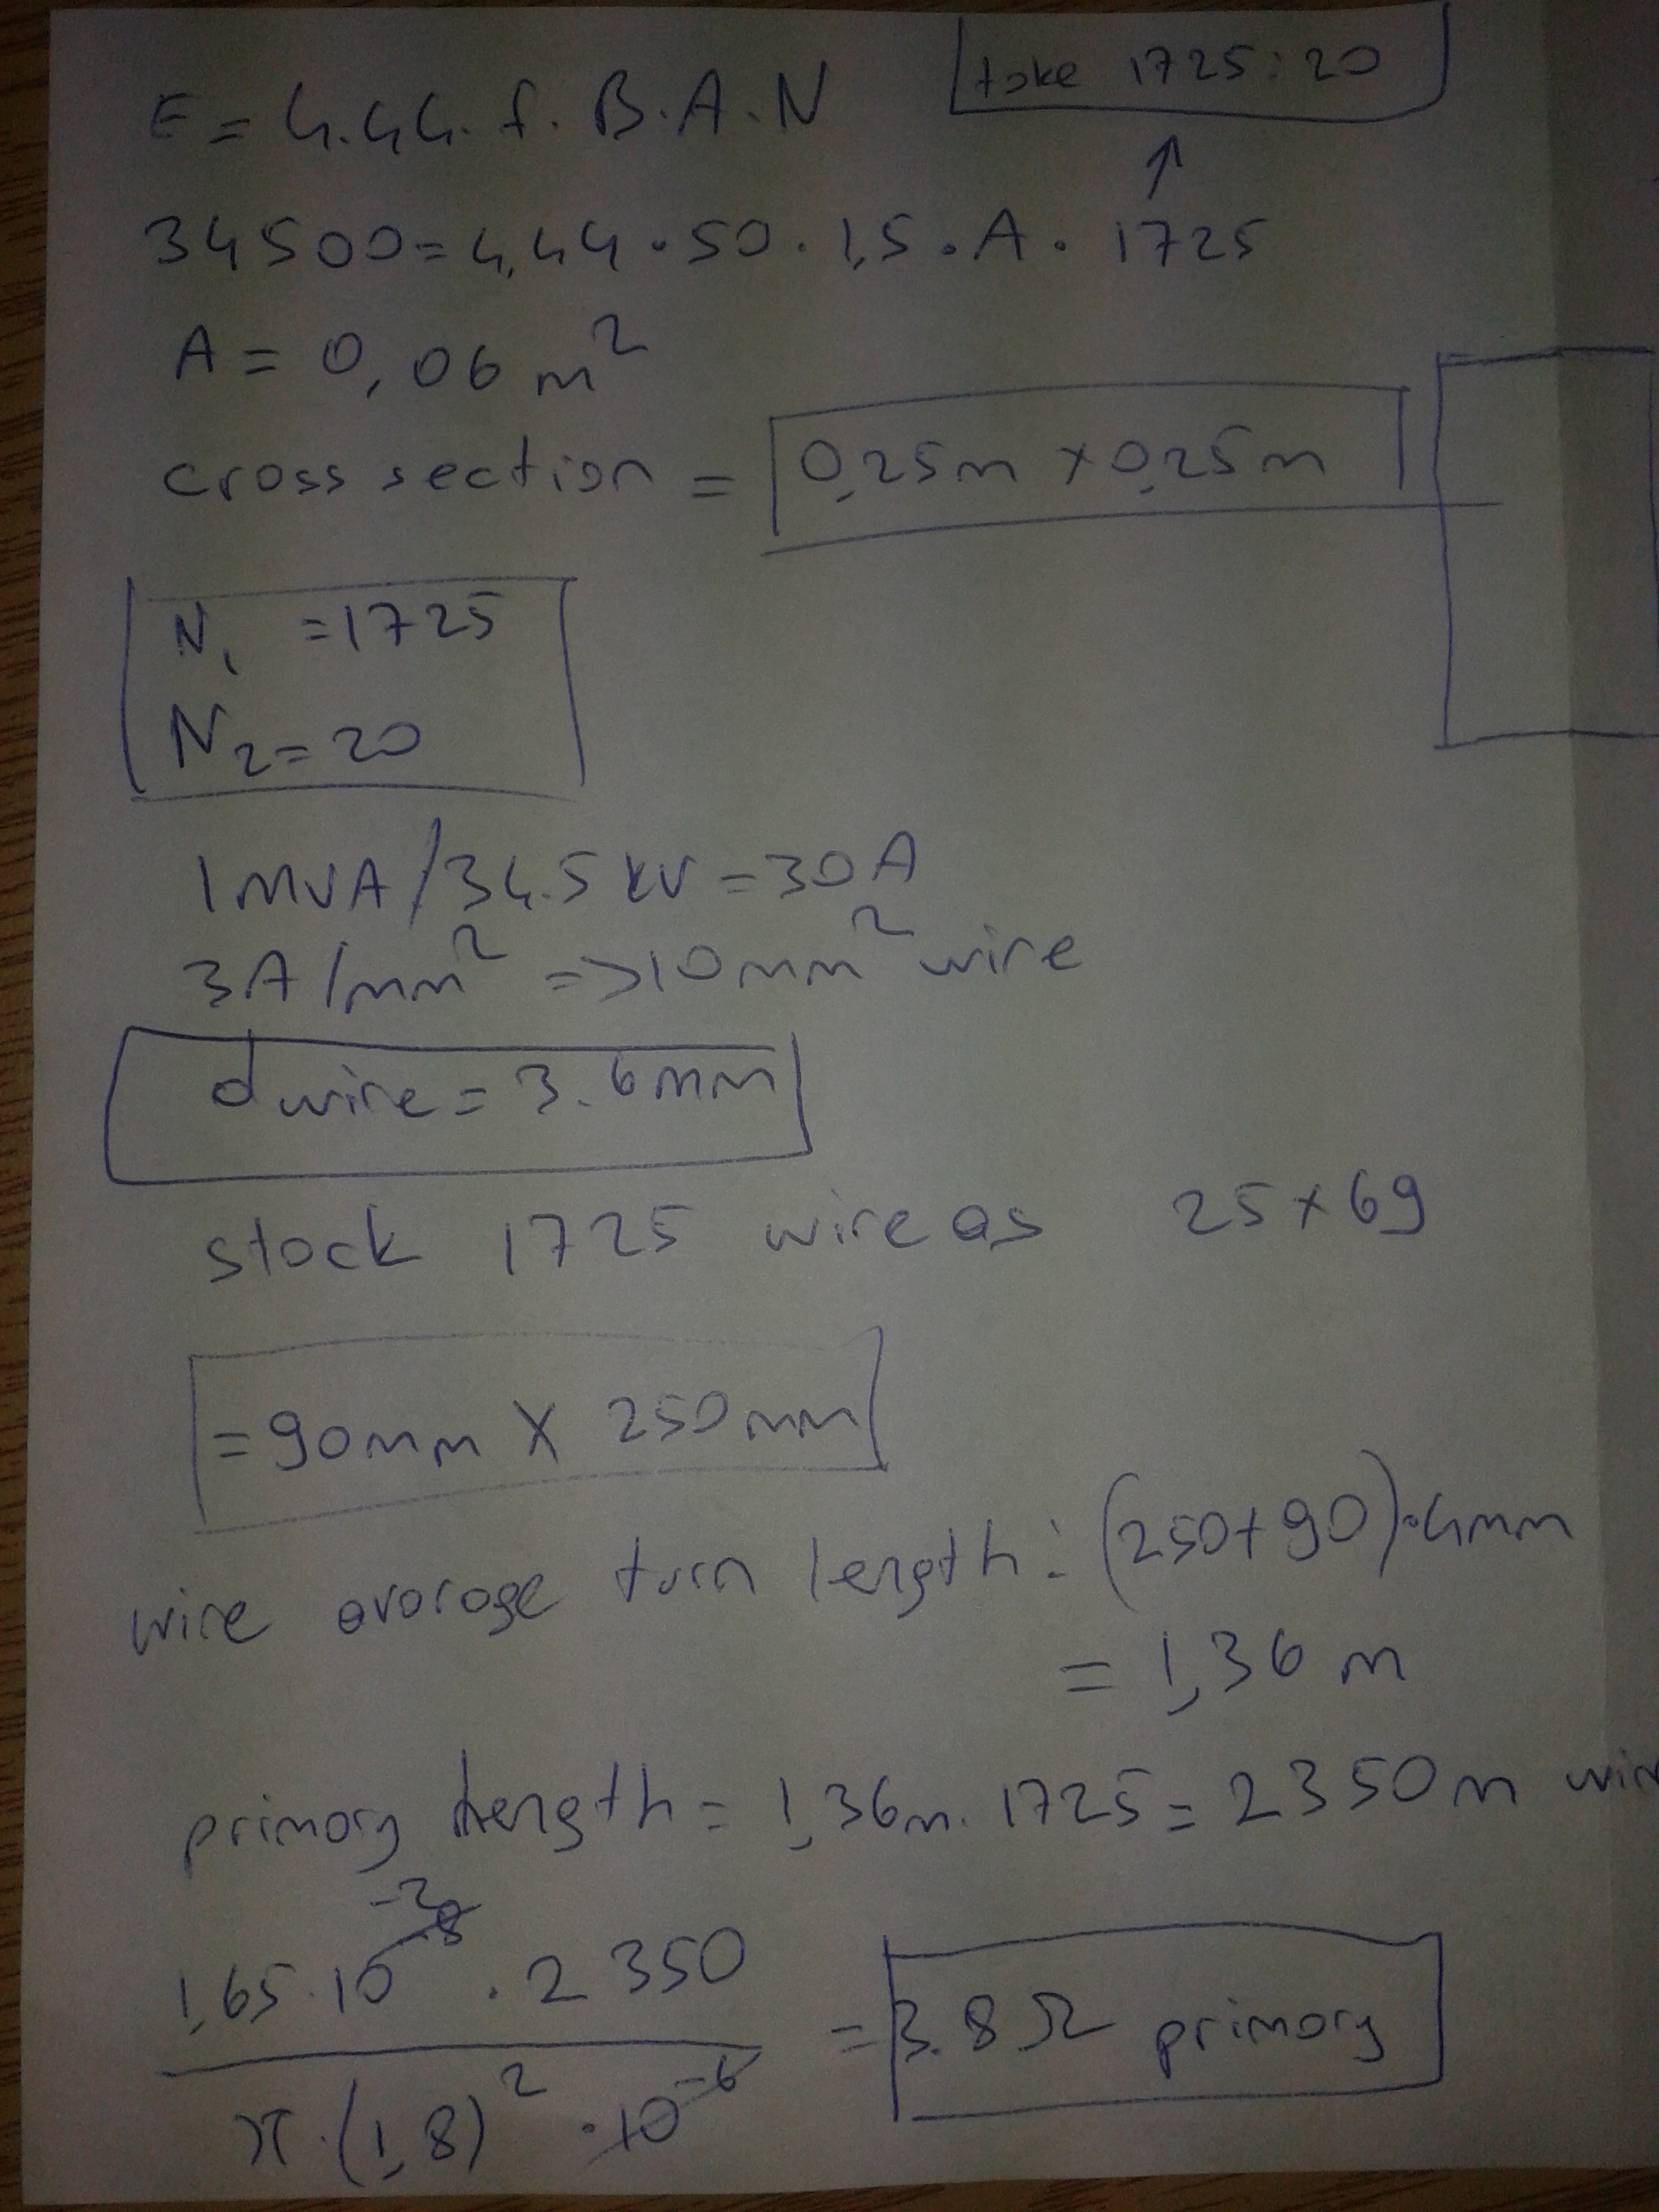 E = 4.44. f. B.A.N
take 1725:20
↑
34500=4,44 . 50 . 1,5 . A . 1725
A = 0,06 m²
cross section = 0,25m x 0,25m
N₁ =1725
N₂=20
1MVA/34.5 kV =30A
3A/mm² =>10mm² wire
dwire= 3.6mm
stack 1725 wire as 25x69
=90mm X 250mm
wire avarage turn length: (250+90).4mm
= 1,36 m
primary length= 1,36m. 1725= 2350m
1,65.10⁻² . 2350
π.(1,8)² .10⁻⁶
=3.8Ω primary